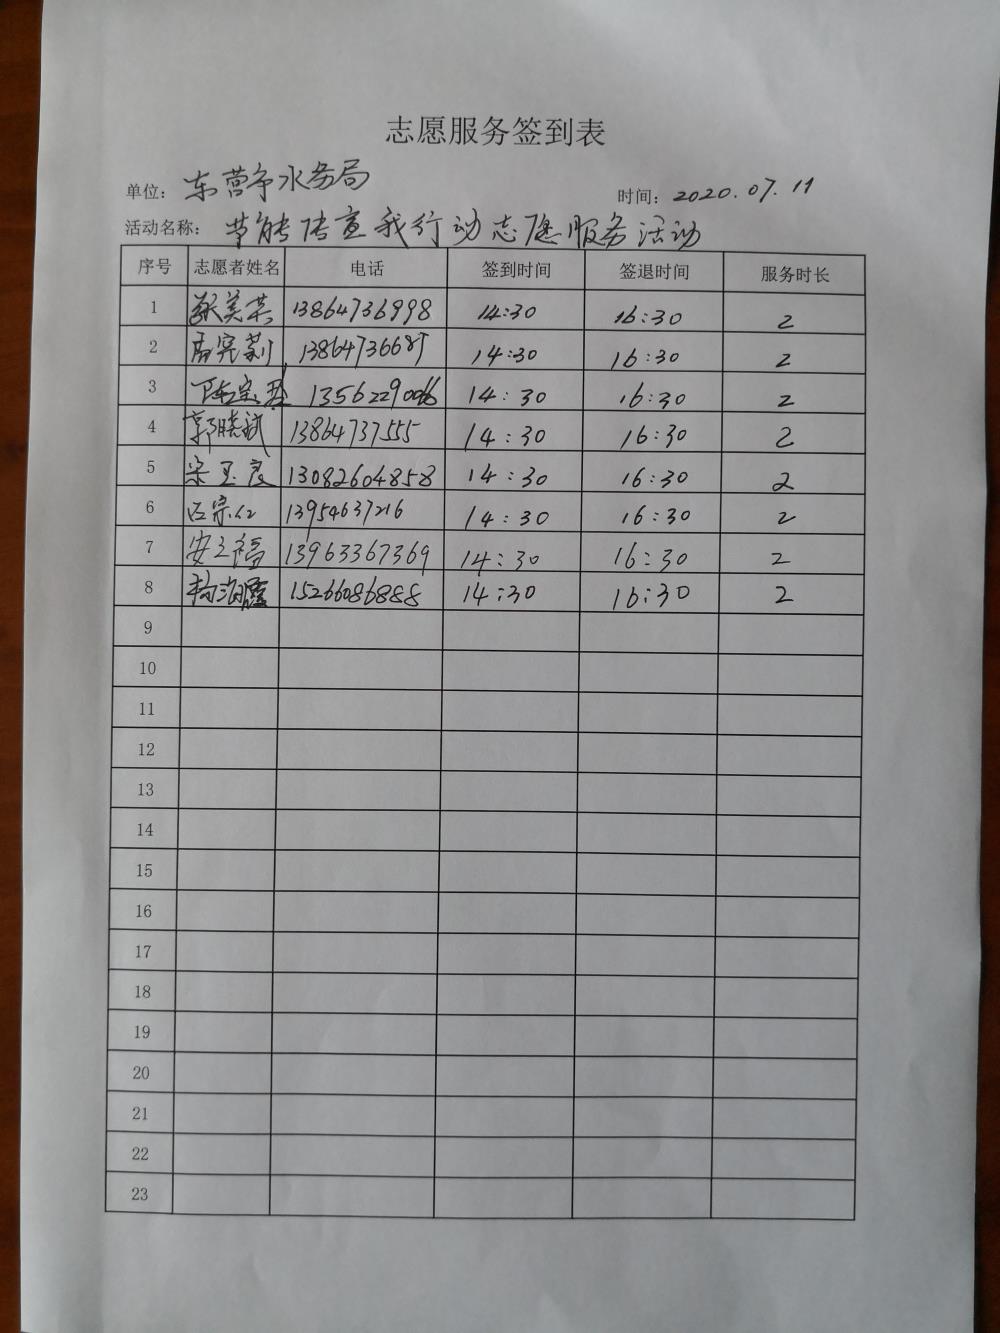 志愿服务签到表
单位：东营市水务局 时间：2020.07.11
活动名称：节能宣我行动志愿服务活动
序号 志愿者姓名 电话 签到时间 签退时间 服务时长
1 张美荣 13864736998 14:30 16:30 2
2 138647366 14:30 16:30 2
3 陈宝 135622900 14:30 16:30 2
4 郭晓斌 13864737555 14:30 16:30 2
5 宋玉良 13082604858 14:30 16:30 2
6 宗仁 13954637216 14:30 16:30 2
7 安立福 13963367369 14:30 16:30 2
8 15266086888 14:30 16:30 2
9
10
11
12
13
14
15
16
17
18
19
20
21
22
23